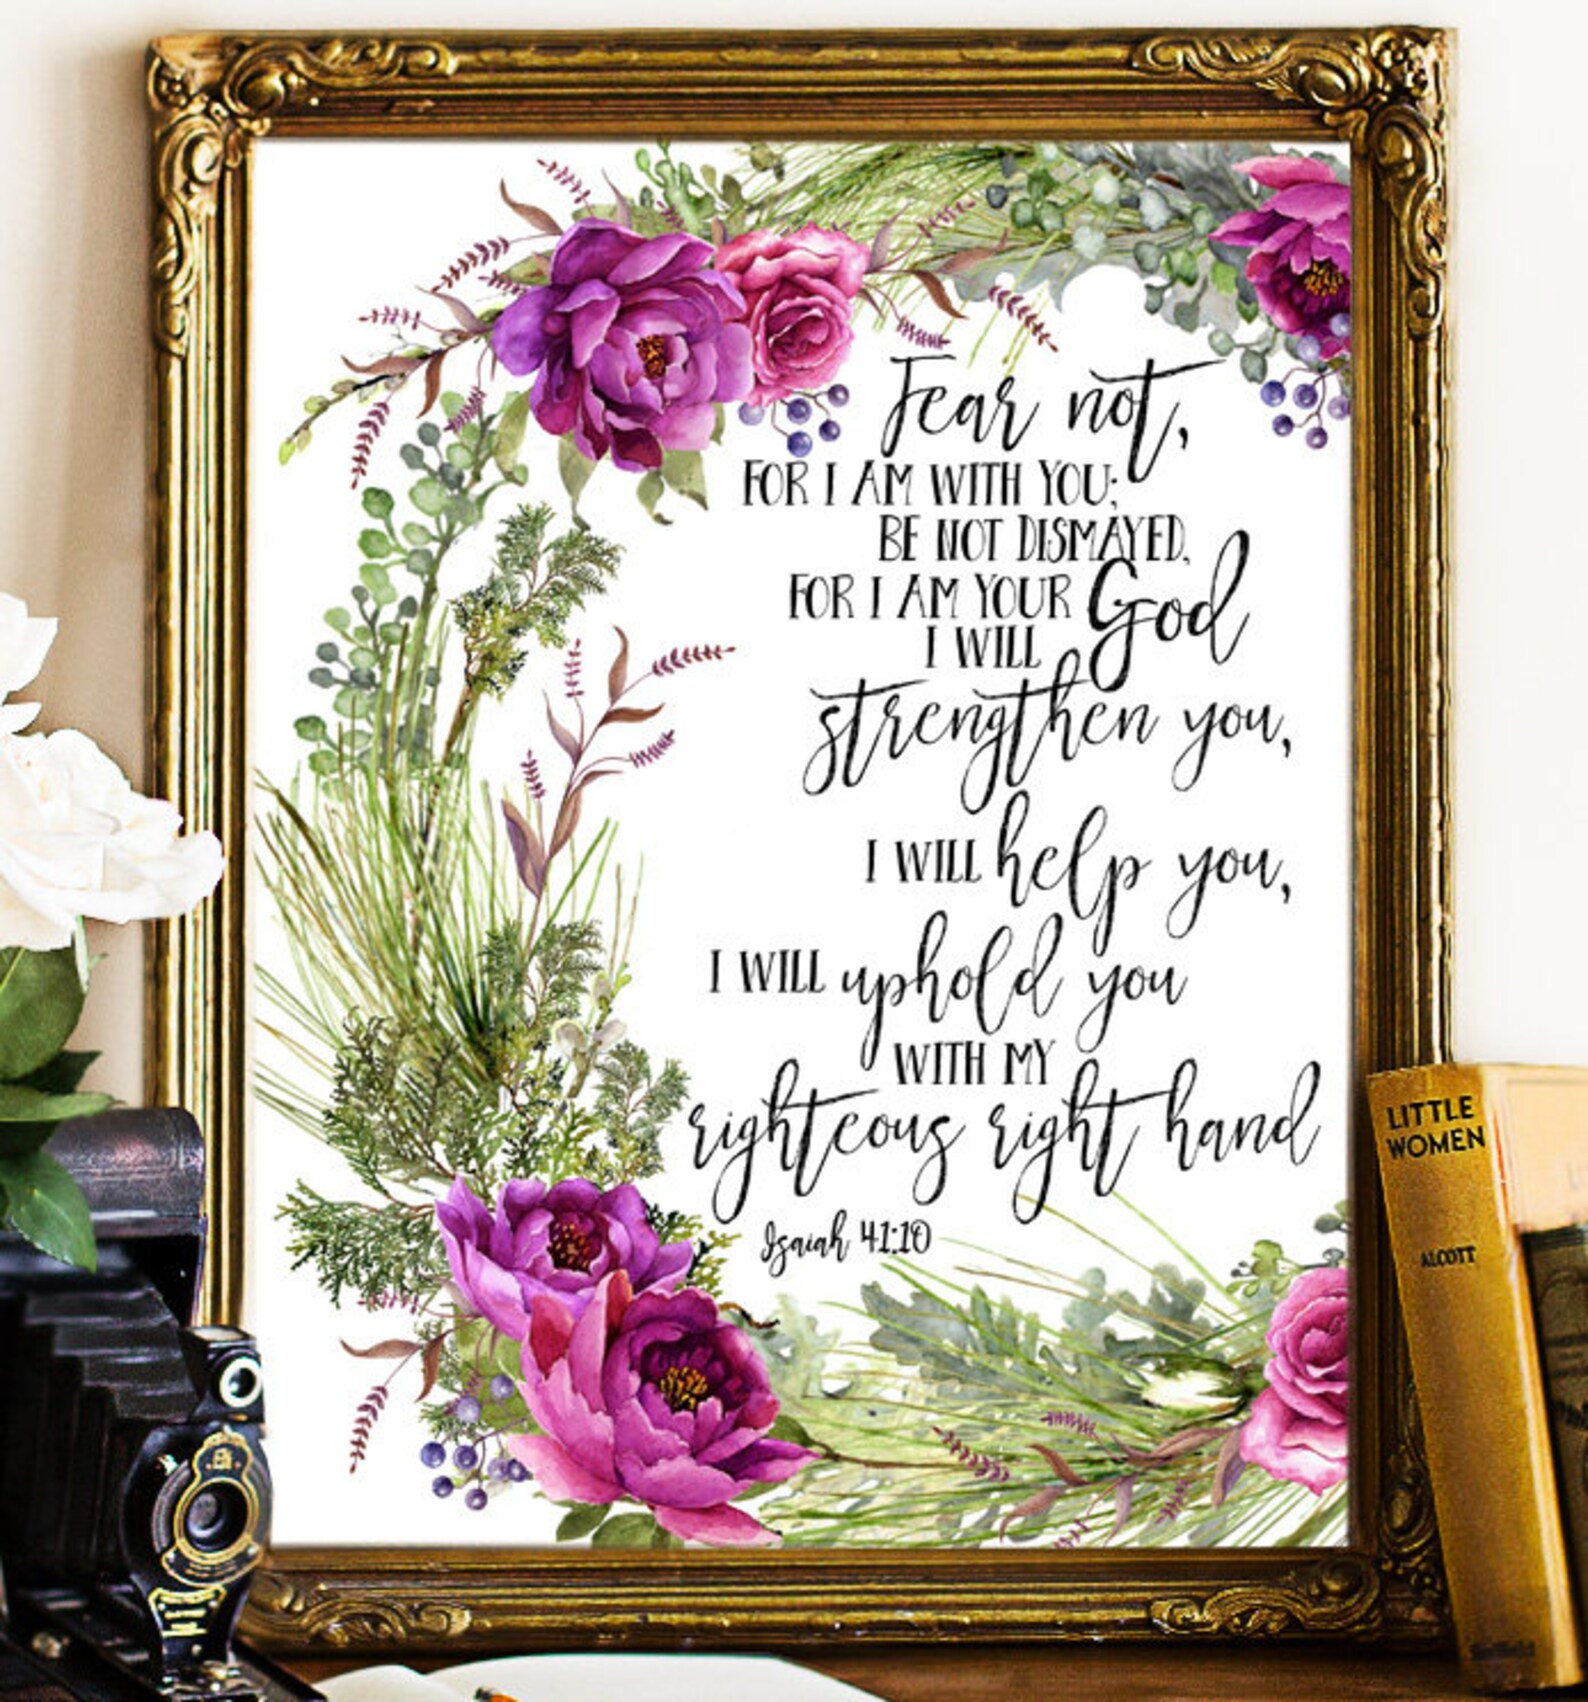 Fear not,
FOR I AM WITH YOU;
BE NOT DISMAYED,
FOR I AM YOUR God
I WILL
strengthen you,
I WILL help you,
I WILL uphold you
WITH MY
righteous right hand
Isaiah 41:10
LITTLE
WOMEN
ALCOTT